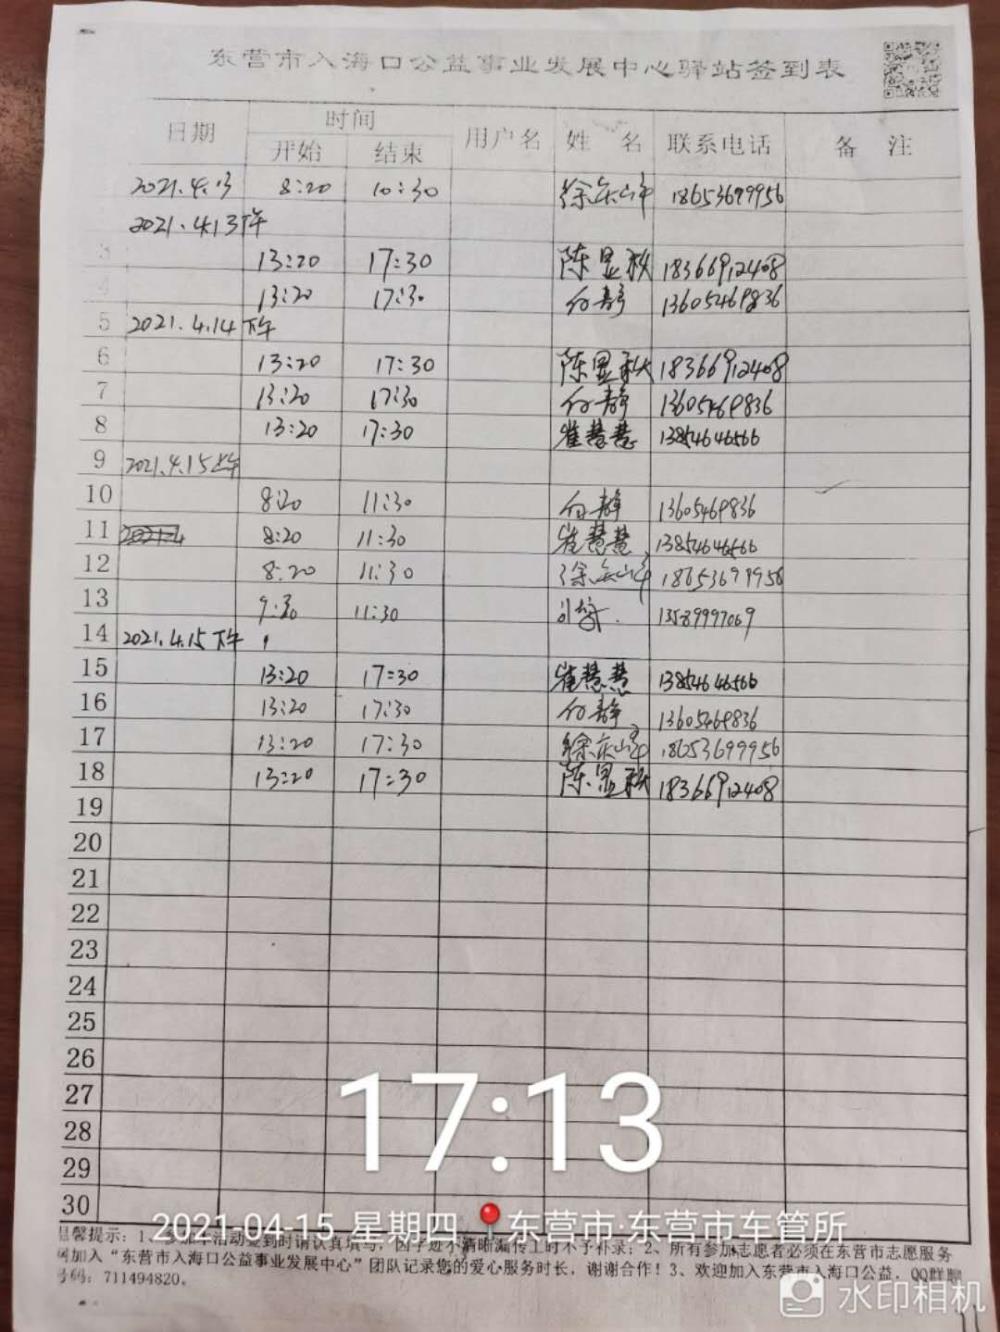 东营市入海口公益事业发展中心驿站签到表
日期 时间 用户名 姓名 联系电话 备注
开始 结束
2021.4.13 8:20 10:30 18653699956
2021.4.13下午
3 13:20 17:30 陈显秋 18366912408
4 13:20 17:30 白静 13605469836
5 2021.4.14下午
6 13:20 17:30 陈显秋 18366912408
7 13:20 17:30 白静 13605469836
8 13:20 17:30 崔慧慧 13854646566
9 2021.4.15上午
10 8:20 11:30 白静 13605469836
11 8:20 11:30 崔慧慧 13854646566
12 8:20 11:30 18653699956
13 9:30 11:30 13589997069
14 2021.4.15下午
15 13:20 17:30 崔慧慧 13854646566
16 13:20 17:30 白静 13605469836
17 13:20 17:30 18653699956
18 13:20 17:30 陈显秋 18366912408
19
20
21
22
23
24
25
26
27
28
29
30
17:13
2021-04-15 星期四 东营市·东营市车管所
温馨提示：1、活动签到时请认真填写，因字迹不清晰漏传工时不予补录；2、所有参加志愿者必须在东营市志愿服务
网加入“东营市入海口公益事业发展中心”团队记录您的爱心服务时长，谢谢合作！3、欢迎加入东营市入海口公益，QQ群
号码：711494820。
水印相机